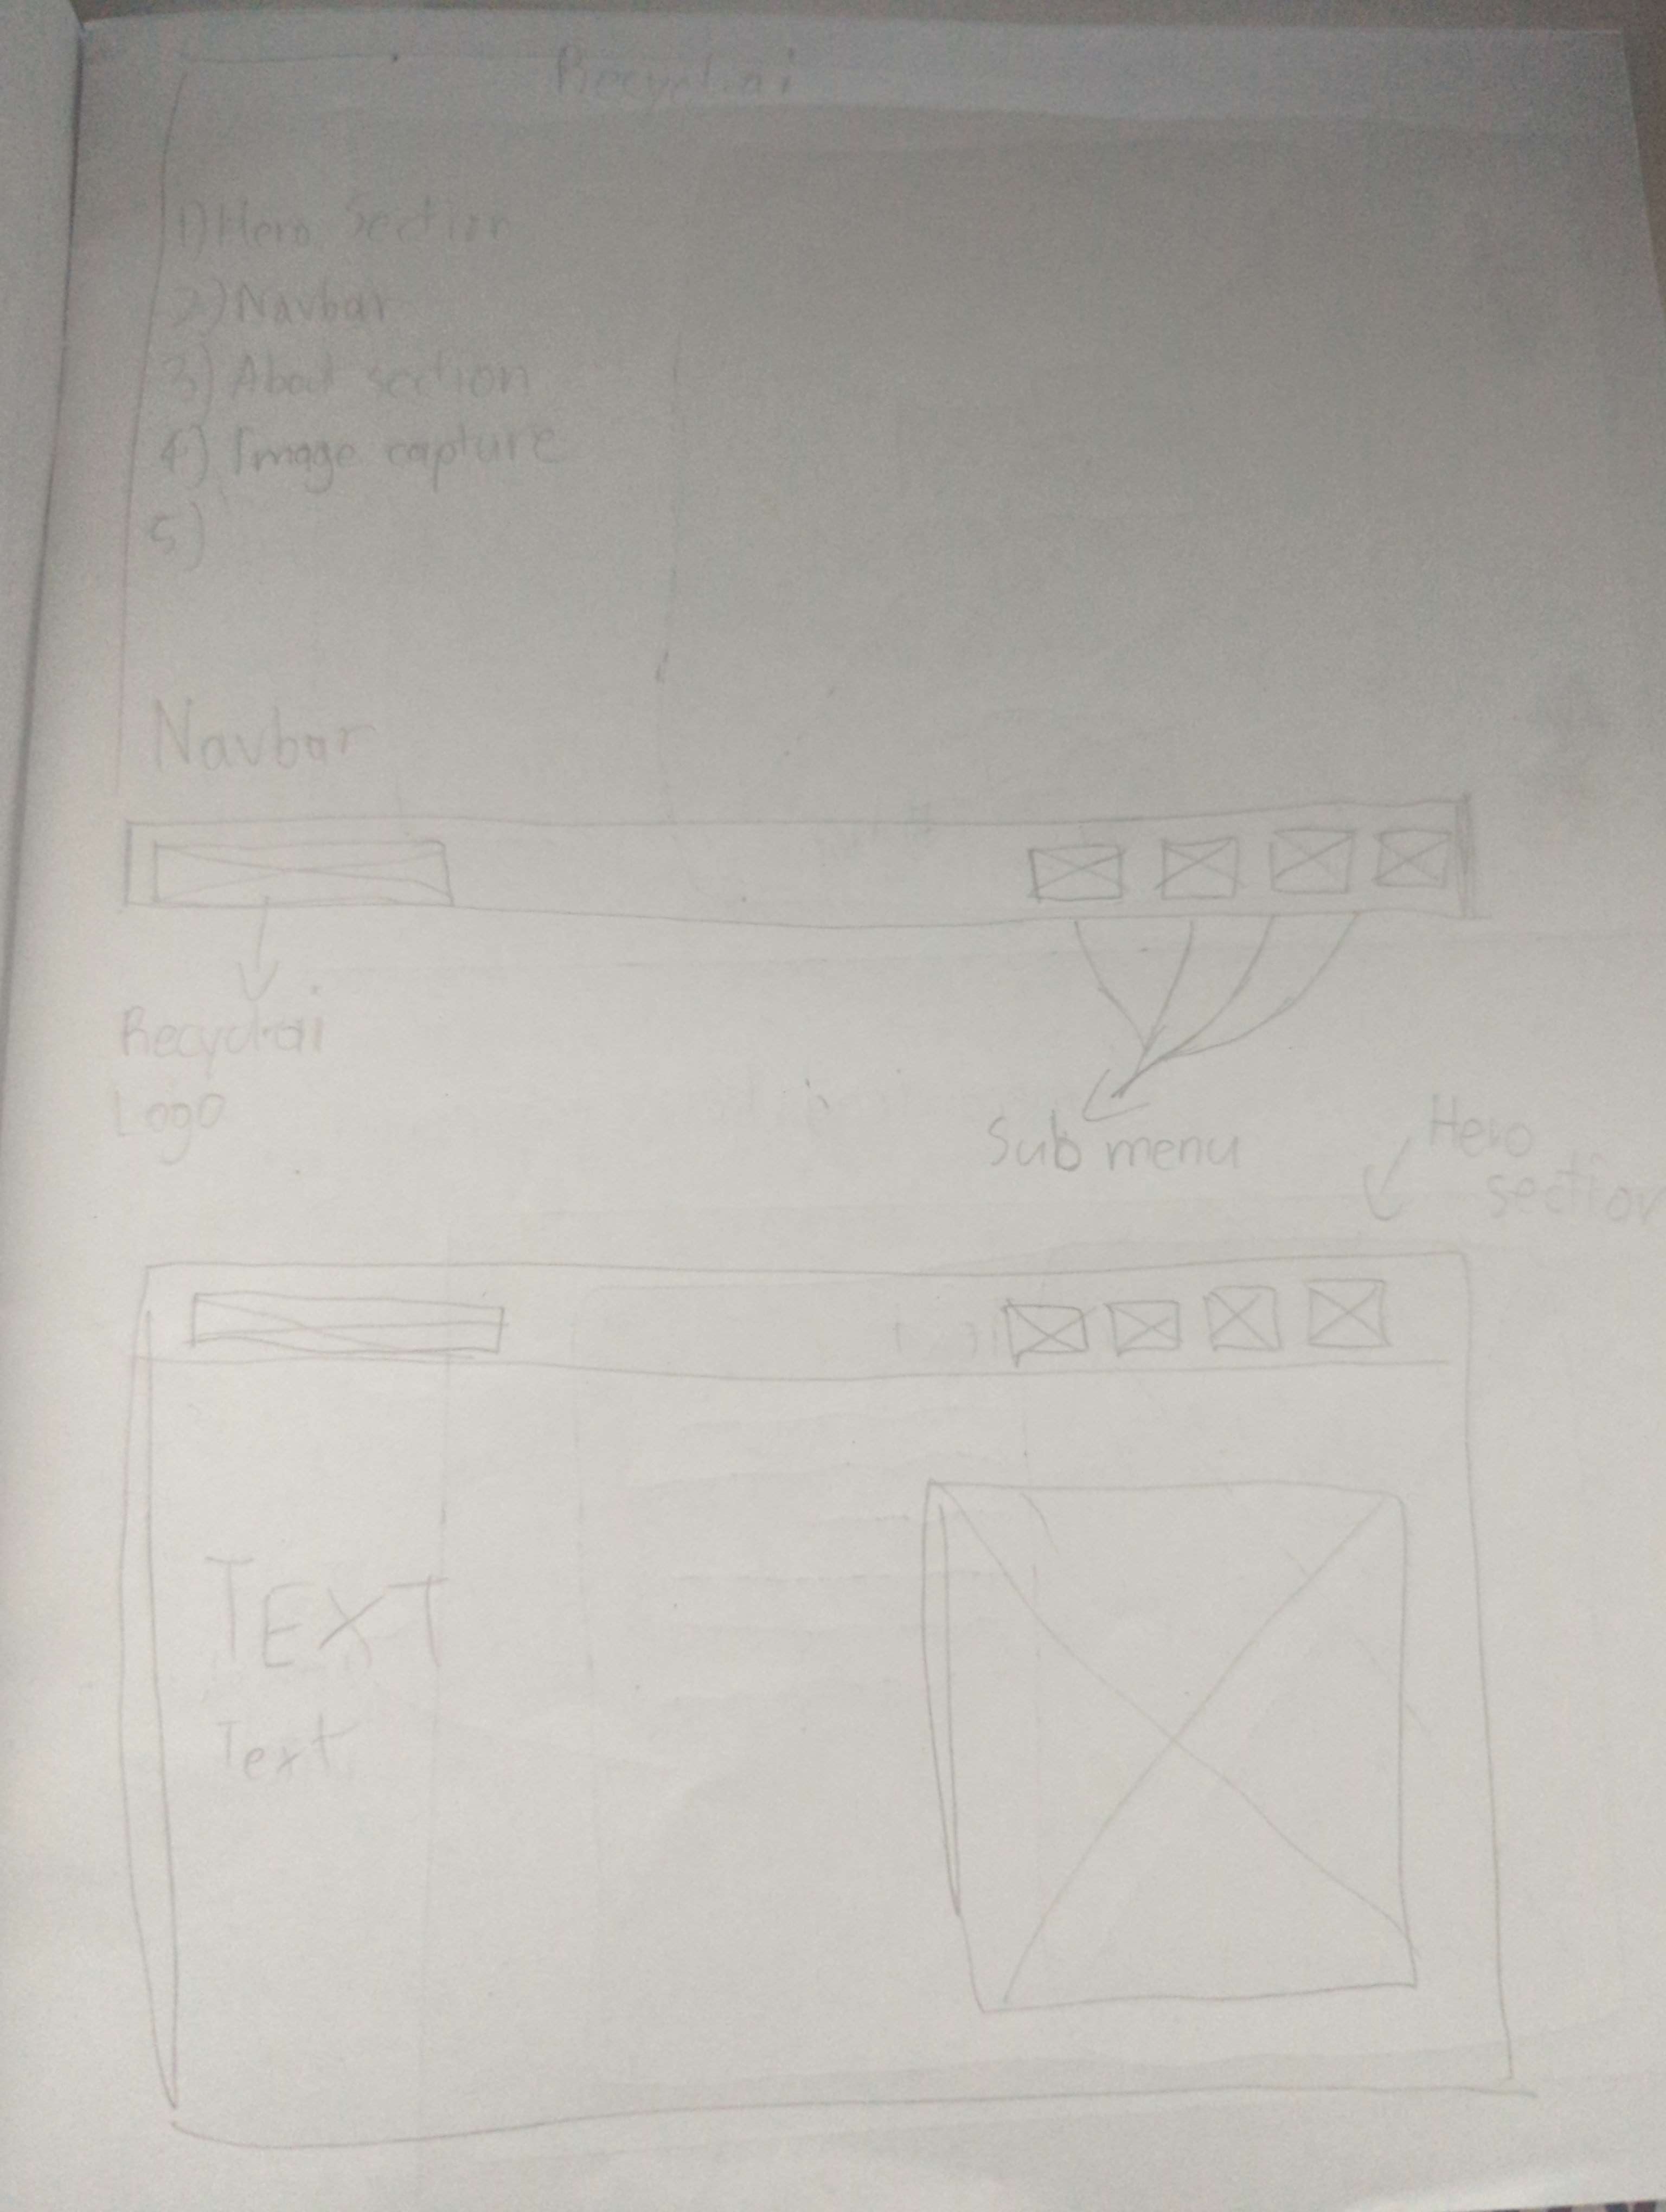 Recycl.ai
1) Hero Section
2) Navbar
3) About section
4) Image capture
5)
Navbar
Recycl.ai
Logo
Sub menu
Hero
section
TEXT
Text